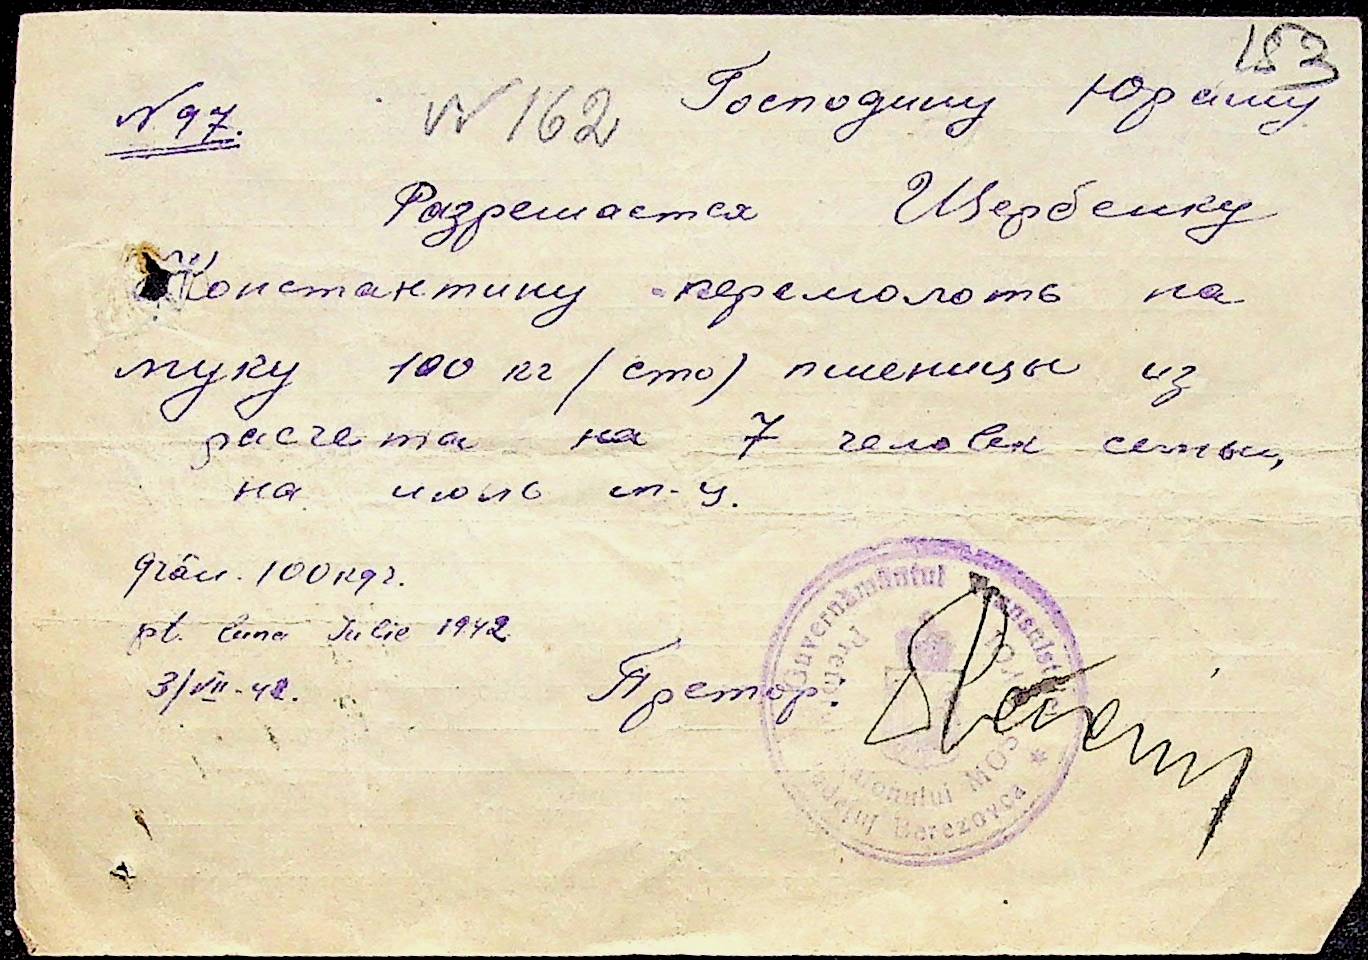 183
№ 97.
№ 162
Господину Юрашу
Разрешается Щербенку
Константину перемолоть на
муку 100 кг /сто) пшеницы из
расчета на 7 человек семьи,
на июль м-ц.
grâu. 100 kgr.
pt. luna Iulie 1942
3/VII-42.
Претор:
Guvernământul Transnistriei
Pretura
Raionului MOS
Județul Berezovca *